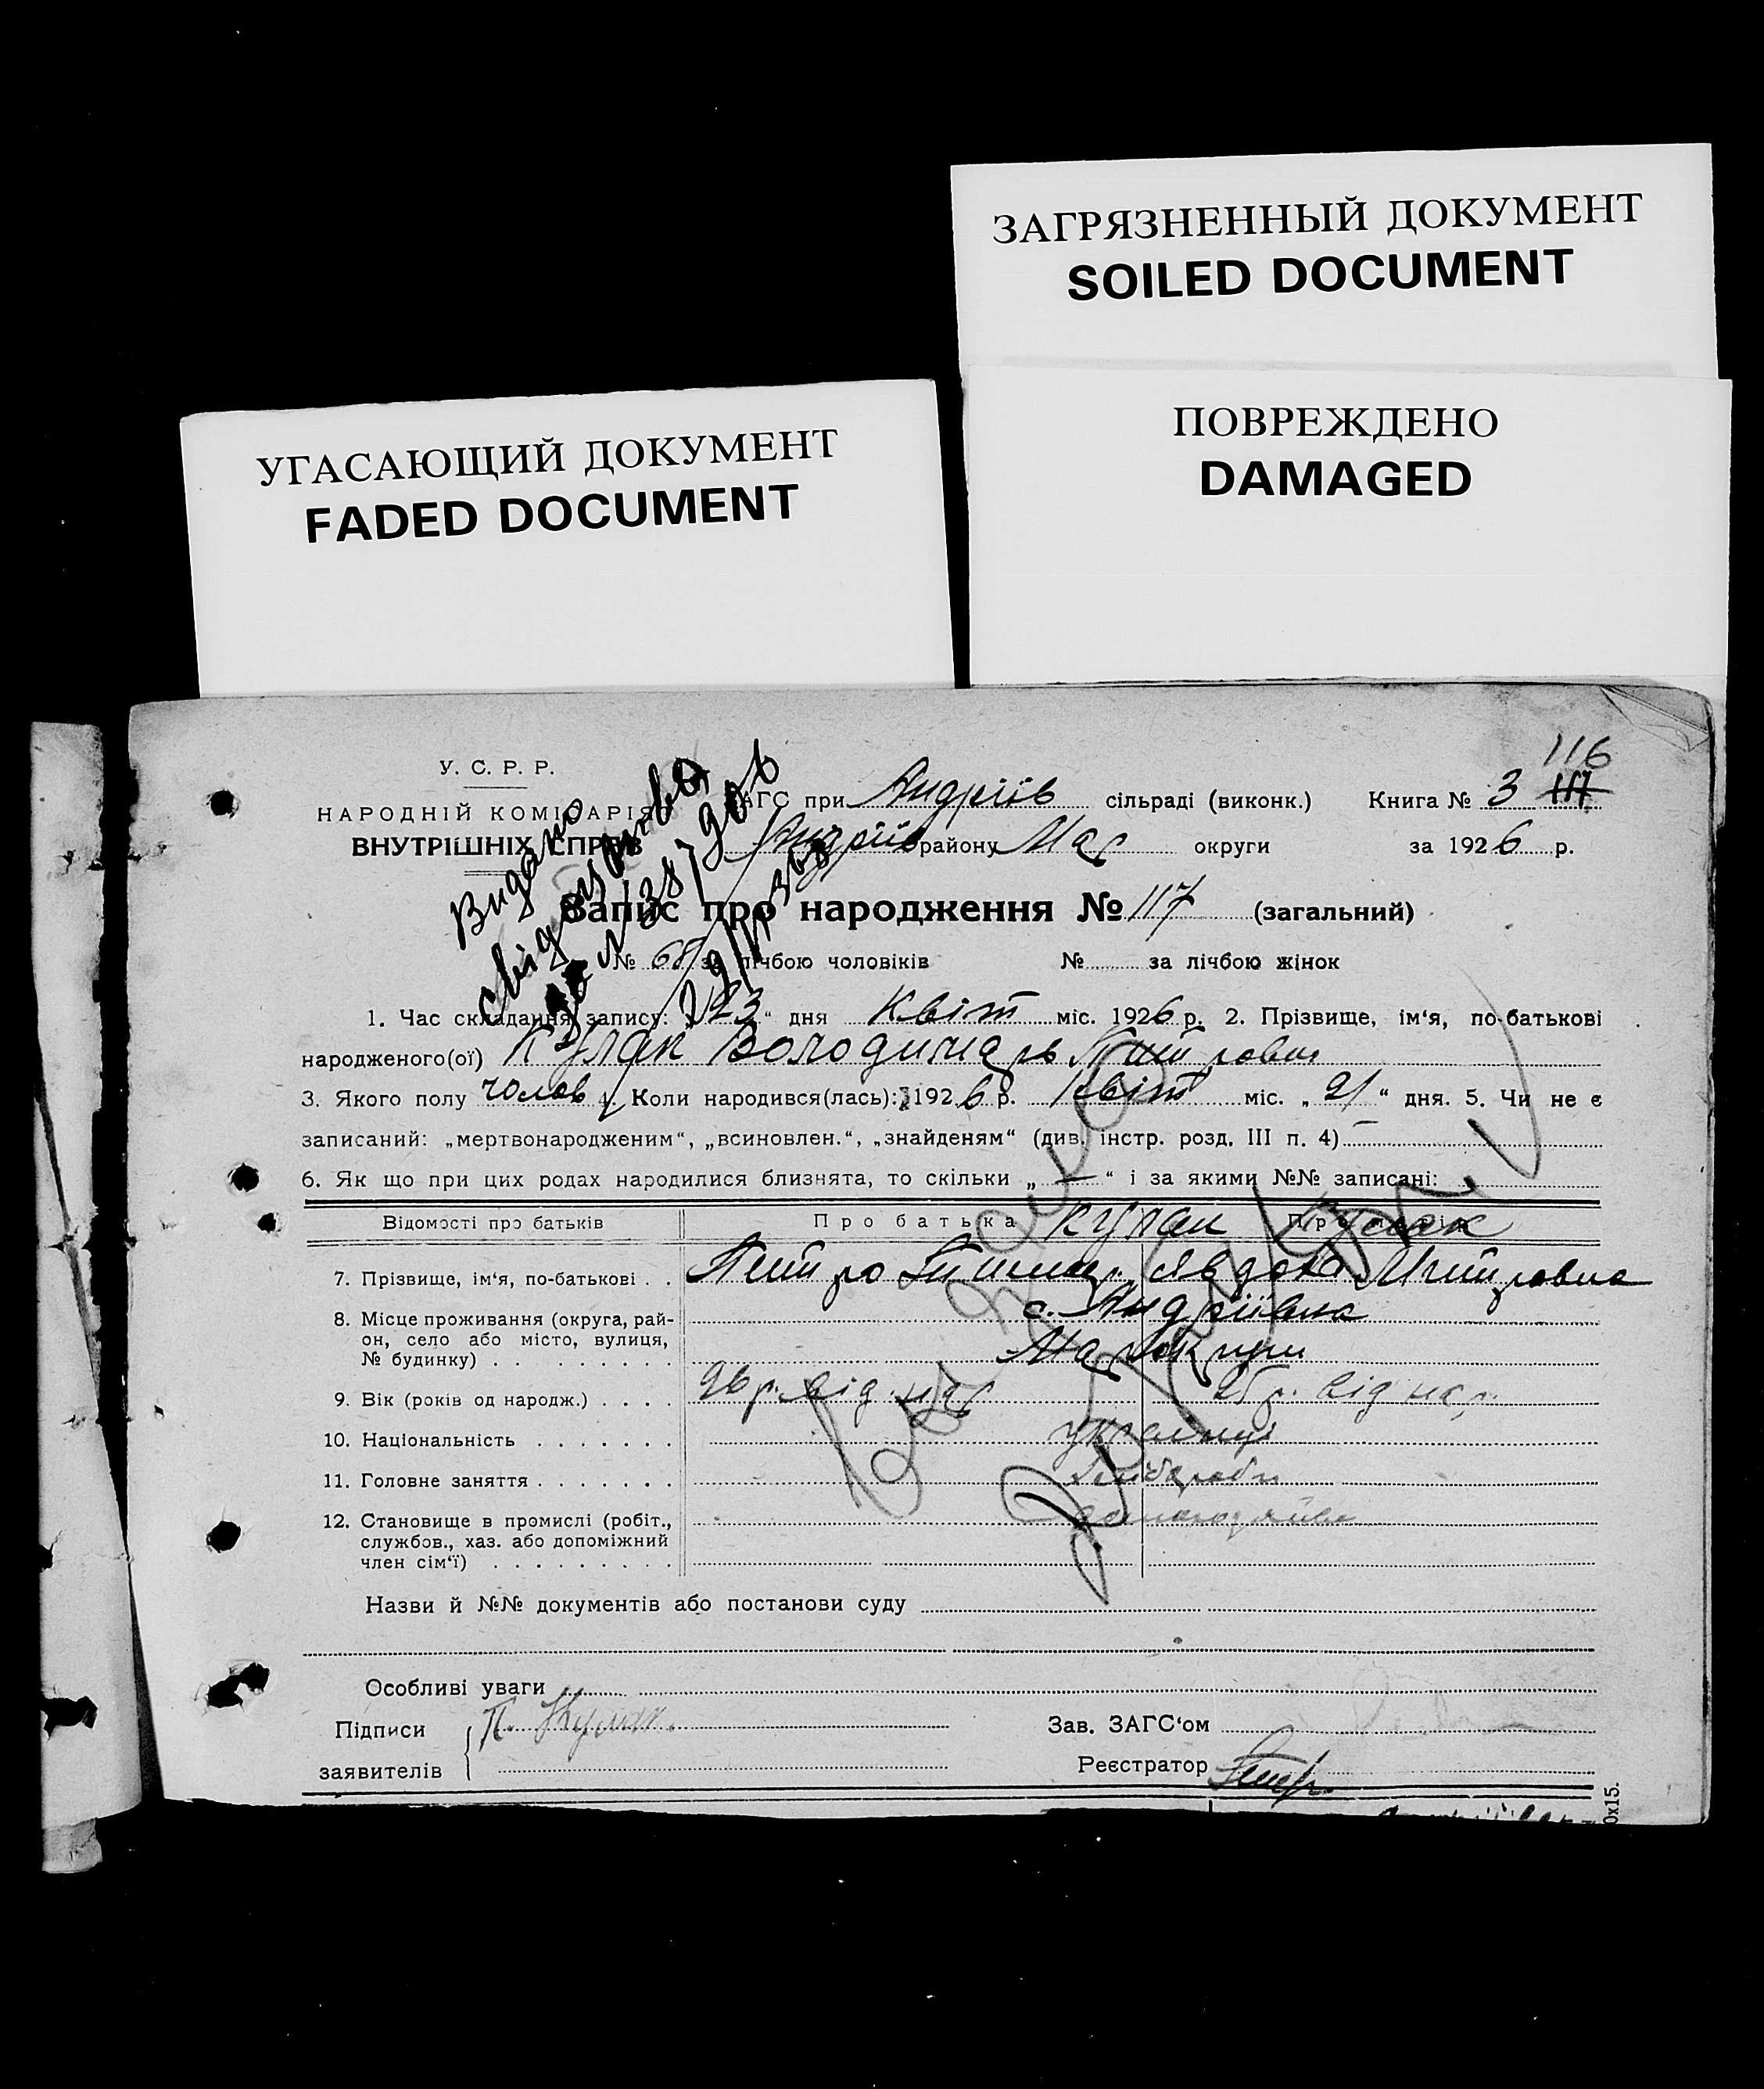 ЗАГРЯЗНЕННЫЙ ДОКУМЕНТ
SOILED DOCUMENT
УГАСАЮЩИЙ ДОКУМЕНТ
FADED DOCUMENT
ПОВРЕЖДЕНО
DAMAGED
116
У. С. Р. Р.
НАРОДНІЙ КОМІСАРІЯ
ВНУТРІШНІХ СПРАВ
АГС при Андріїв сільраді (виконк.) Книга № 3 117
Андріїв району Мар округи за 1926 р.
Видано
Запис про народження № 117 (загальний)
№ 68 за лічбою чоловіків № за лічбою жінок
1. Час складання запису: „23“ дня Квіт міс. 1926 р. 2. Прізвище, ім‘я, по-батькові
народженого(ої) Кулак Володимарь Питрович
3. Якого полу чолов 4. Коли народився(лась): 1926 р. Квіт міс. „21“ дня. 5. Чи не є
записаний: „мертвонародженим“, „всиновлен.“, „знайденям“ (див. інстр. розд. III п. 4) —
6. Як що при цих родах народилися близнята, то скільки „—“ і за якими №№ записані:
Відомості про батьків Про батька Кулак Про матір Кулак
7. Прізвище, ім‘я, по-батькові . . Питро Явдоха Митровна
8. Місце проживання (округа, рай-
он, село або місто, вулиця,
№ будинку) . . . . . . . . .
с. Андріївка
Мар Округи
9. Вік (років од народж.) . . . . 26 р. від нар 25 р. від нар.
10. Національність . . . . . . . українці
11. Головне заняття . . . . . . . хліборобы
12. Становище в промислі (робіт.,
службов., хаз. або допоміжний
член сім‘ї) . . . . . . . . .
Назви й №№ документів або постанови суду
Особливі уваги
Підписи
заявителів
П. Кулак.
Зав. ЗАГС‘ом
Реєстратор
0х15.